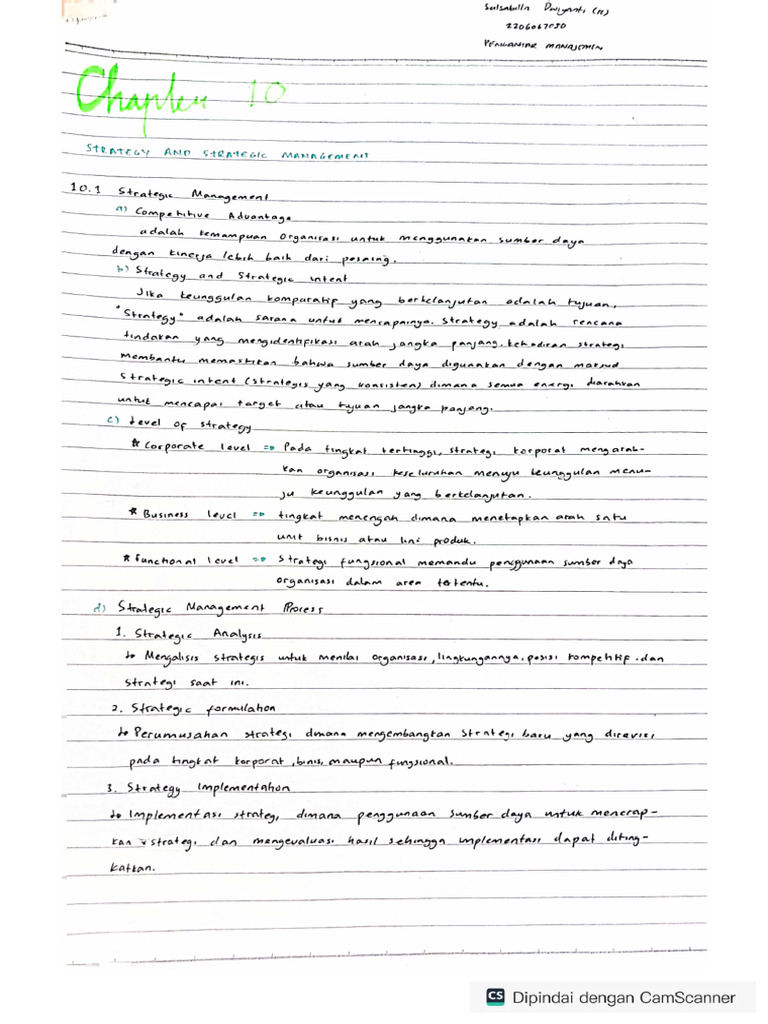 Salsabilla Dwiyanti (11)
PENGANTAR MANAJEMEN
Chapter 10
STRATEGY AND STRATEGIC MANAGEMENT
10.1 Strategic Management
a) Competitive Advantage
adalah kemampuan organisasi untuk menggunakan sumber daya
dengan kinerja lebih baik dari pesaing.
b) Strategy and Strategic intent
Jika keunggulan komparatif yang berkelanjutan adalah tujuan,
"Strategy" adalah sarana untuk mencapainya. Strategy adalah rencana
tindakan yang mengidentifikasi arah jangka panjang. kehadiran strategi
membantu memastikan bahwa sumber daya digunakan dengan maksud
Strategic intent (strategis yang konsisten) dimana semua energi diarahkan
untuk mencapai target atau tujuan jangka panjang.
c) Level of strategy
* Corporate level => Pada tingkat tertinggi, strategi korporat mengarah-
kan organisasi keseluruhan menuju keunggulan menu-
ju keunggulan yang berkelanjutan.
* Business level => tingkat menengah dimana menetapkan arah satu
unit bisnis atau lini produk.
* Functional level => Strategi fungsional memandu penggunaan sumber daya
organisasi dalam area tertentu.
d) Strategic Management Process
1. Strategic Analysis
↳ Mengalisis strategis untuk menilai organisasi, lingkungannya, posisi kompetitif. dan
strategi saat ini.
2. Strategic formulation
↳ Perumusahan strategi dimana mengembangkan strategi baru yang direvisi
pada tingkat korporat, binis, maupun fungsional.
3. Strategy Implementation
↳ Implementasi strategi dimana penggunaan sumber daya untuk menerap-
kan strategi dan mengevaluasi hasil sehingga implementasi dapat diting-
katkan.
CS Dipindai dengan CamScanner